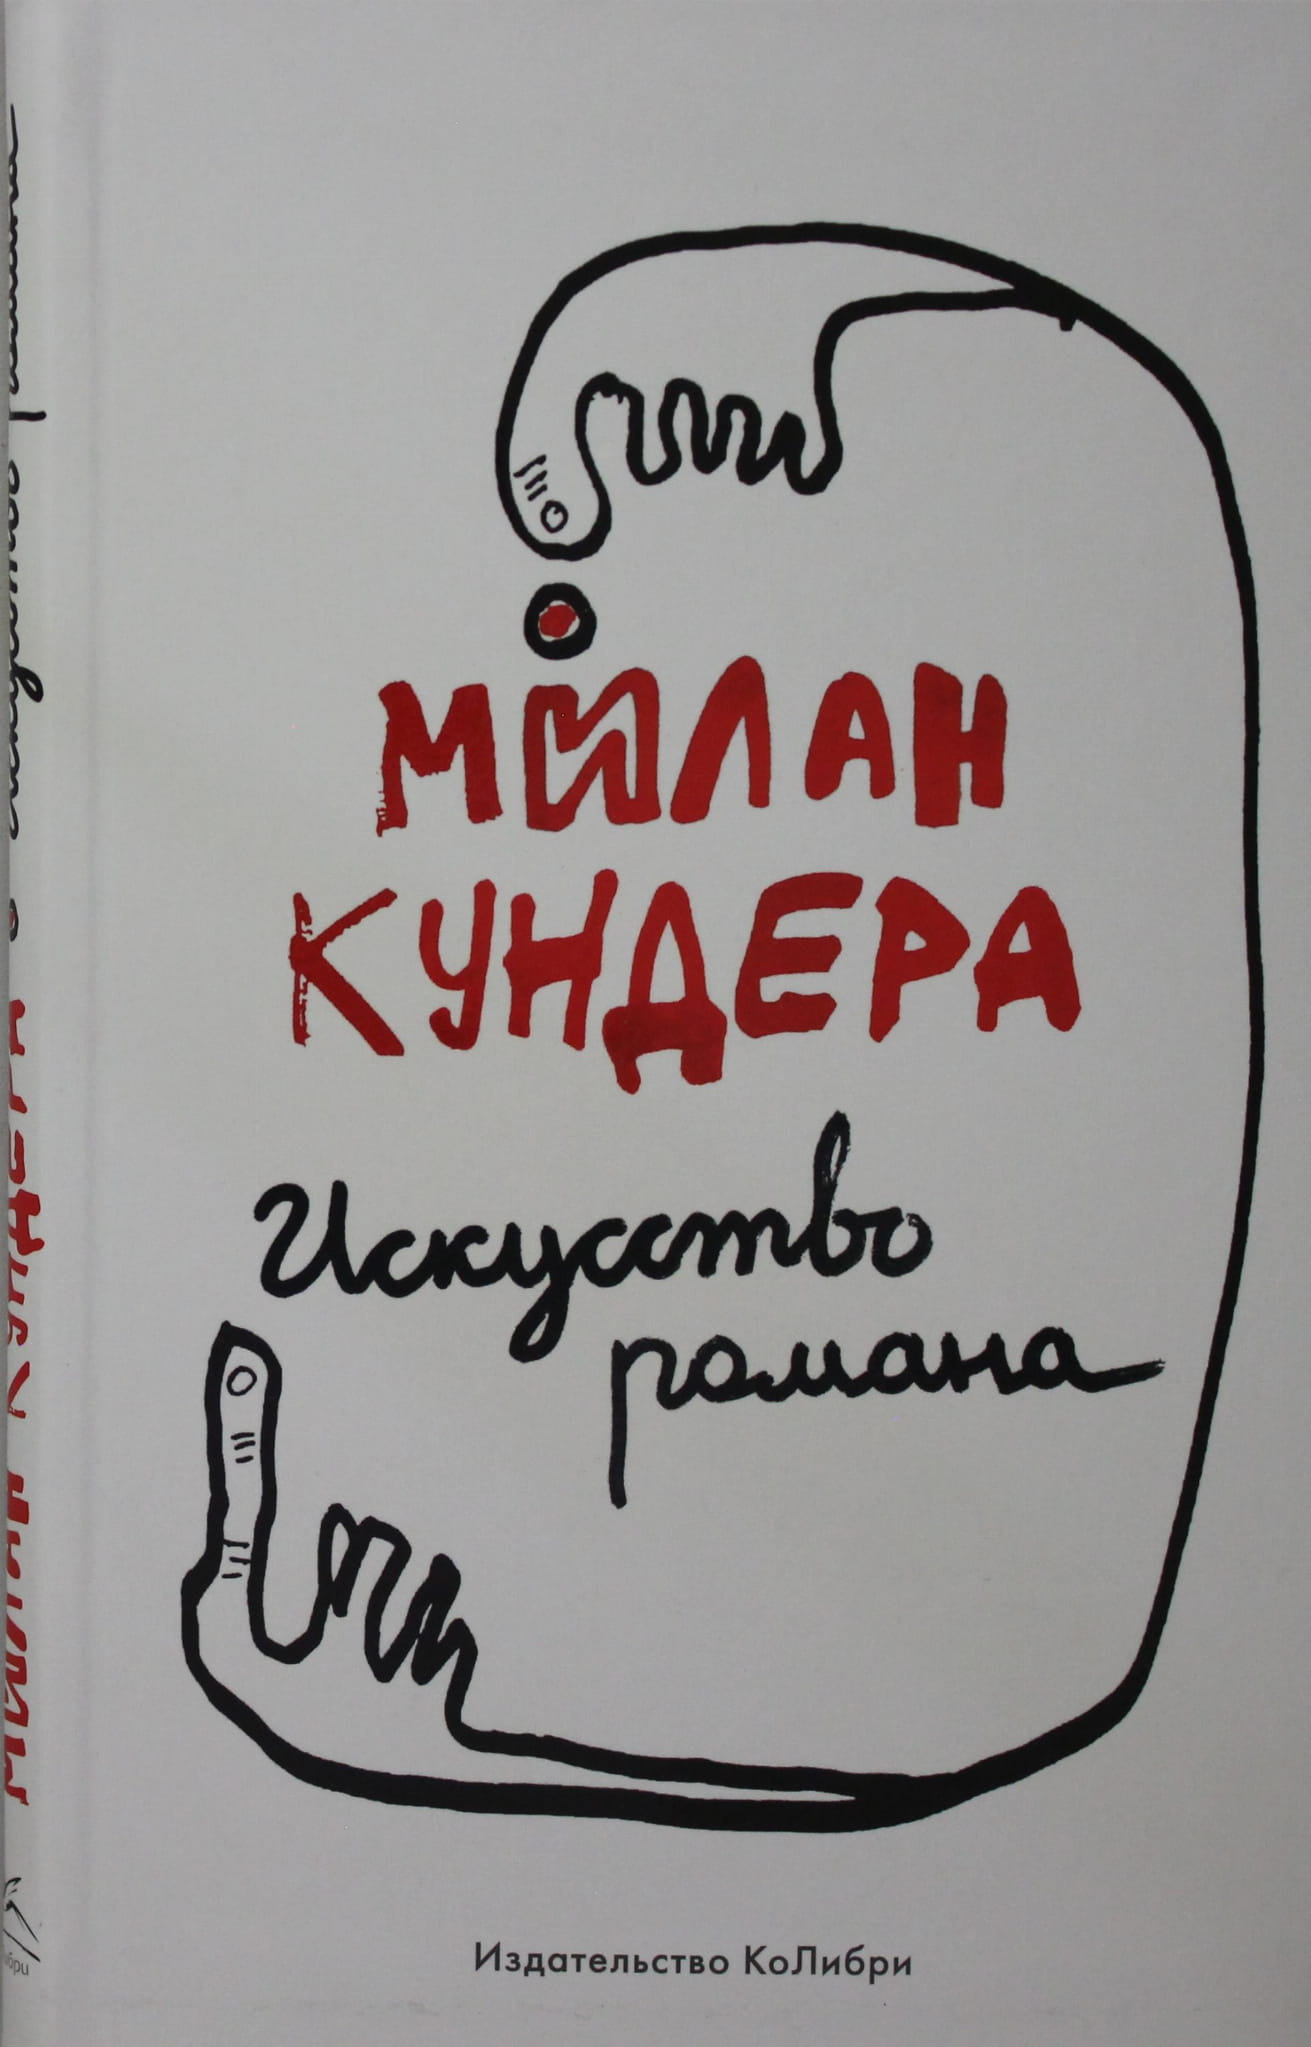 МИЛАН
КУНДЕРА
Искусство
романа
Издательство КоЛибри
МИЛАН КУНДЕРА Искусство романа